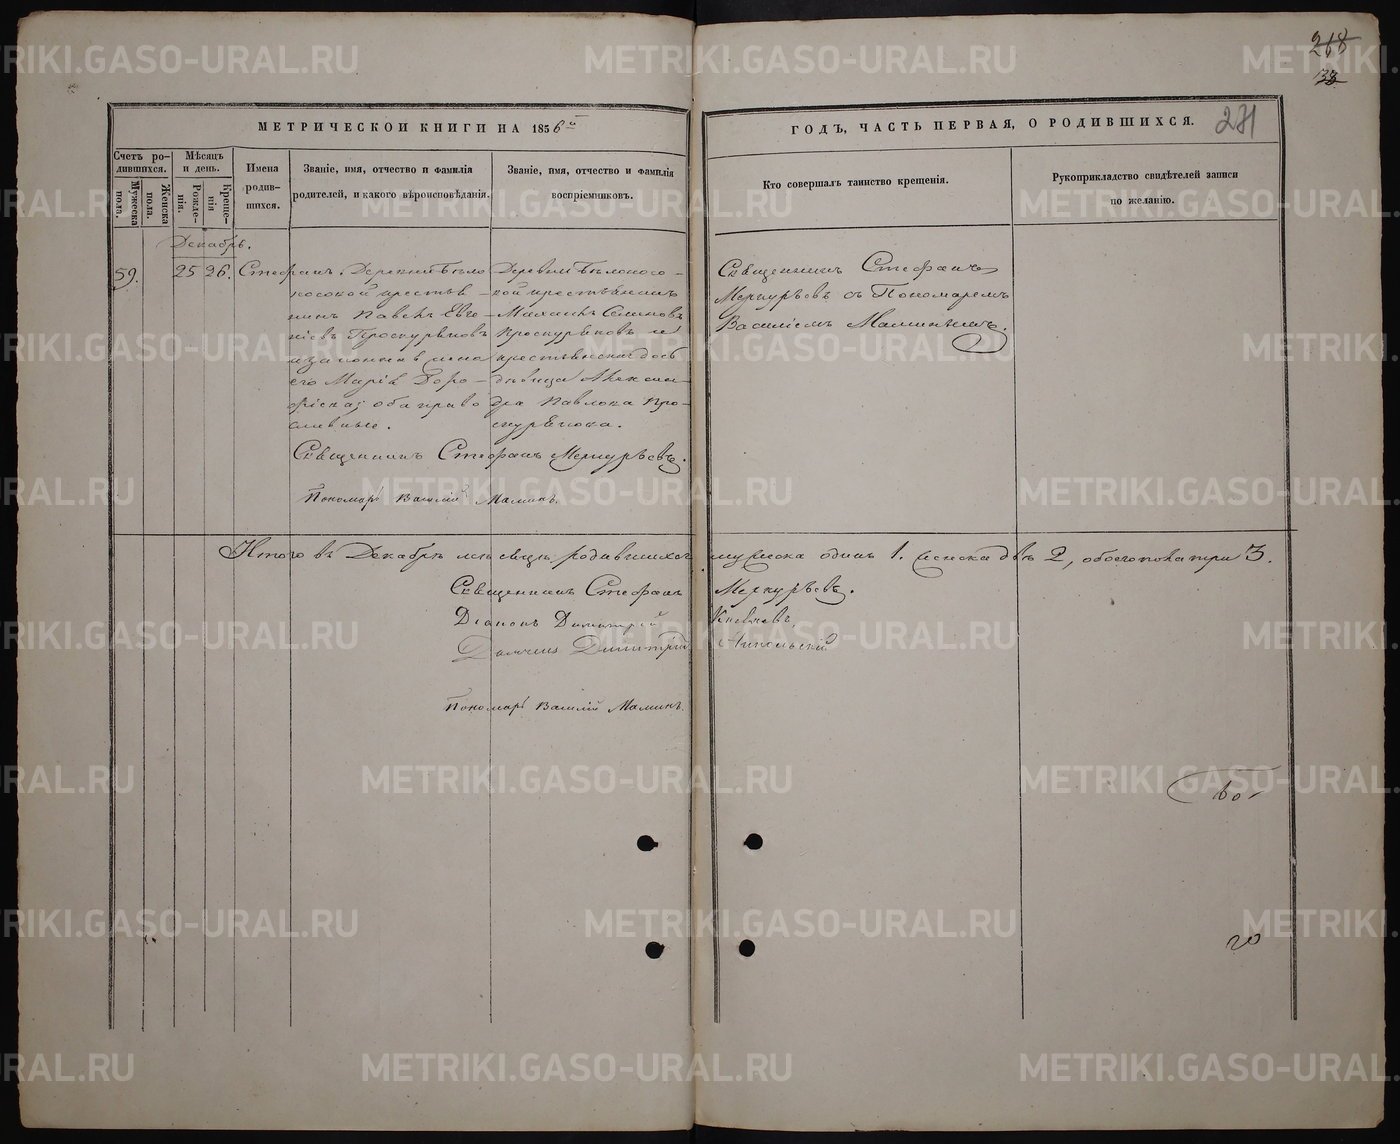 268
38
271
МЕТРИЧЕСКОЙ КНИГИ НА 1856й
ГОДЪ, ЧАСТЬ ПЕРВАЯ, О РОДИВШИХСЯ.
Счетъ ро-
дившихся.
Мужеска
пола.
Женска
пола.
Мѣсяцъ
и день.
Рожде-
нія.
Креще-
нія
Имена
родив-
шихся.
Званіе, имя, отчество и фамилія
родителей, и какого вѣроисповѣданія.
Званіе, имя, отчество и фамилія
воспріемниковъ.
Кто совершалъ таинство крещенія.
Рукоприкладство свидѣтелей записи
по желанію.
Декабрь.
59.
25
26.
Стефанъ.
Деревни Бѣло
носовой крестья
нинъ Павелъ Евге
ніевъ Проскуряковъ
и законная жена
его Марія Доро-
фіева; оба право
славные.
Деревни Бѣлоносо-
вой крестьянинъ
Михаилъ Семеновъ
Проскуряковъ и
крестьянская дочь
дѣвица Алексан-
дра Павлова Про-
скурякова.
Священникъ Стефанъ
Меркурьевъ съ Пономаремъ
Василіемъ Маминымъ.
Священникъ Стефанъ Меркурьевъ.
Пономарь Василій Маминъ.
Итого въ Декабрѣ мѣсяцѣ родившихся мужеска одинъ 1. женска двѣ 2, обоего пола три 3.
Священникъ Стефанъ Меркурьевъ.
Діаконъ Димитрій
Димитрій
Пономарь Василій Маминъ.
20
METRIKI.GASO-URAL.RU